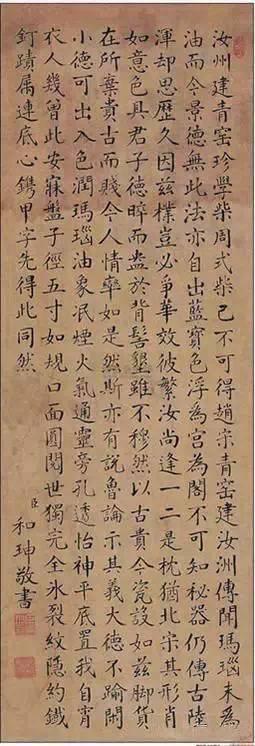 汝州建青窑珍學柴周式柴已不可得趙宋青窑建汝洲傳聞瑪瑙末為
油而今景德無此法亦自出藍寶色浮為宮為閣不可知秘器仍傳古陸
渾却思歷久因兹樸豈必争華效彼繁汝尚逢一二是枕猶北宋其形肖
如意色具君子德晬而盎於背髻墾雖不穆然以古貴今瓷設如兹脚貨
在所棄貴古而賤今人情率如是然斯亦有說魯論示其義大德不踰閑
小德可出入色潤瑪瑙油象泯煙火氣通靈旁孔透怡神平底置我自宵
衣人幾曾此安寐盤子徑五寸如規口面圓閱世獨完全氷裂紋隐約鐵
釘蹟屬連底心鐫甲字先得此同然
臣和珅敬書